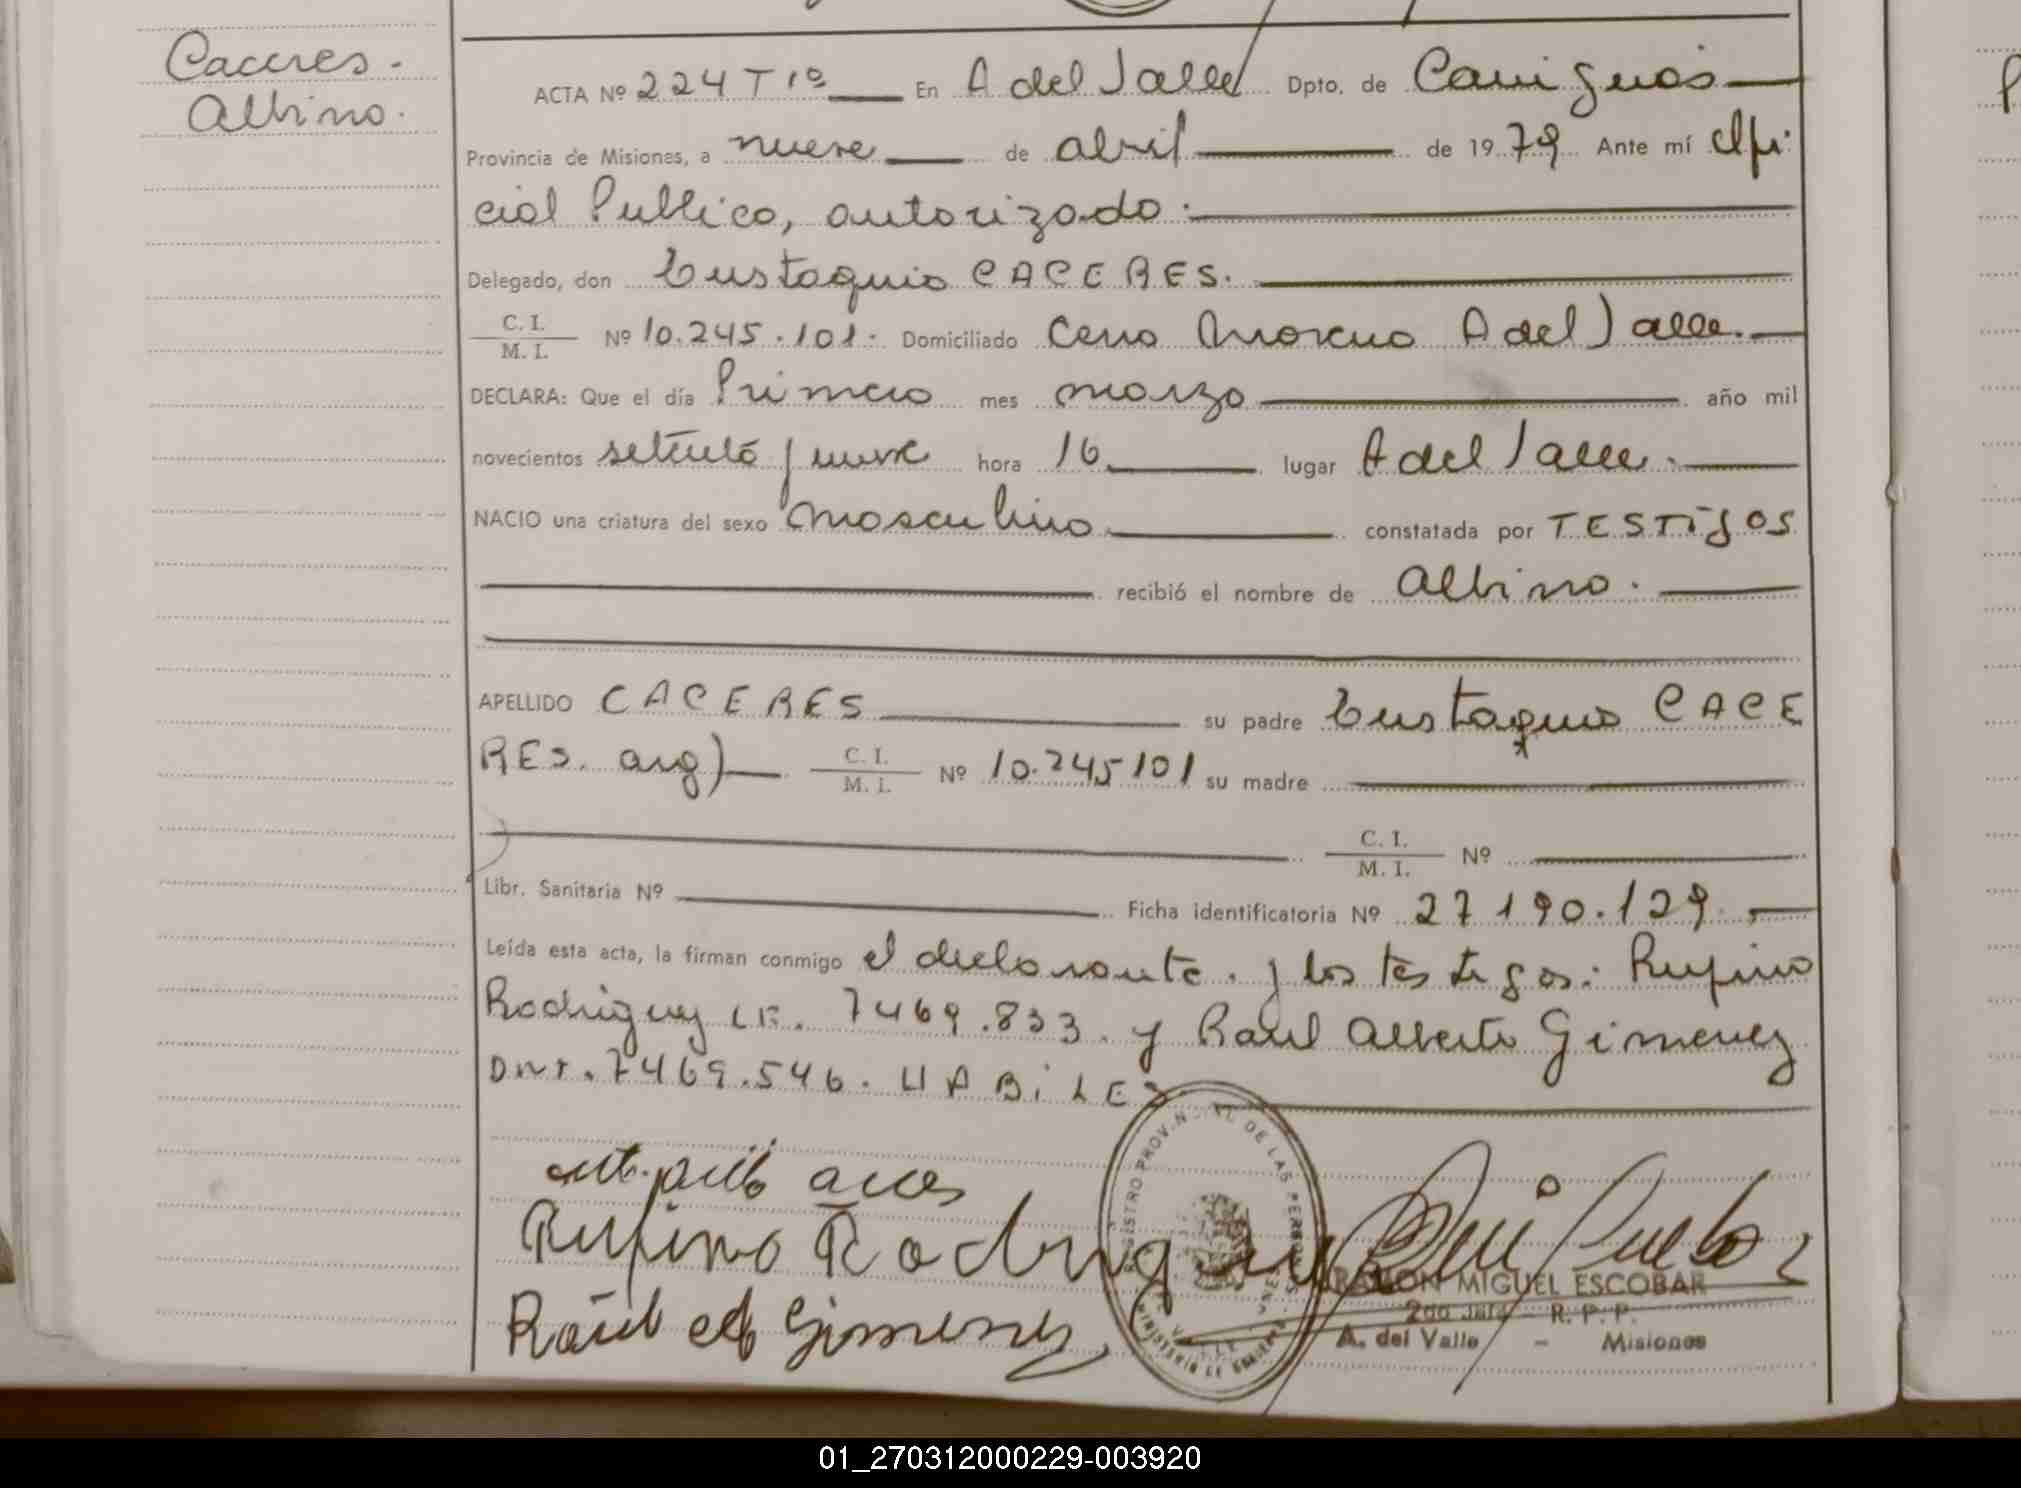 Caceres.
Albino.
ACTA Nº 224 T 1º En A del Valle Dpto. de Cainguas
Provincia de Misiones, a nueve de abril de 1979 Ante mí Ofi
cial Publico, autorizado.
Delegado, don Eustaquio CACERES.
C. I. / M. I. Nº 10.245.101. Domiciliado Cerro Moreno A del Valle.
DECLARA: Que el día Primero mes marzo año mil
novecientos setenta y nueve hora 16 lugar A del Valle.
NACIO una criatura del sexo Masculino constatada por TESTigos
recibió el nombre de Albino.
APELLIDO CACERES su padre Eustaquio CACE
RES. arg) C. I. / M. I. Nº 10.245101 su madre
C. I. / M. I. Nº
Libr. Sanitaria Nº Ficha identificatoria Nº 27190.129.
Leída esta acta, la firman conmigo el declarante. y los testigos: Rufino
Rodriguez LE. 7469.833. y Raul Alberto Gimenez
DNI. 7469.546. HABiLES
Rufino Rodriguez
Raúl Gimenez
REGISTRO PROVINCIAL DE LAS PERSONAS
MINISTERIO DE GOBIERNO
RAMON MIGUEL ESCOBAR
2do Jefe - R. P. P.
A. del Valle - Misiones
01_270312000229-003920